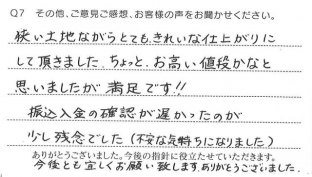 Q7 その他、ご意見ご感想、お客様の声をお聞かせください。
狭い土地ながらとても、きれいな仕上がりに
して頂きました。ちょっと、お高い値段かなと
思いましたが 満足です!!
振込入金の確認が遅かったのが
少し残念でした(不安な気持ちになりました)
ありがとうございました。今後の指針に役立たせていただきます。
今後とも宜しくお願い致します。ありがとうございました。